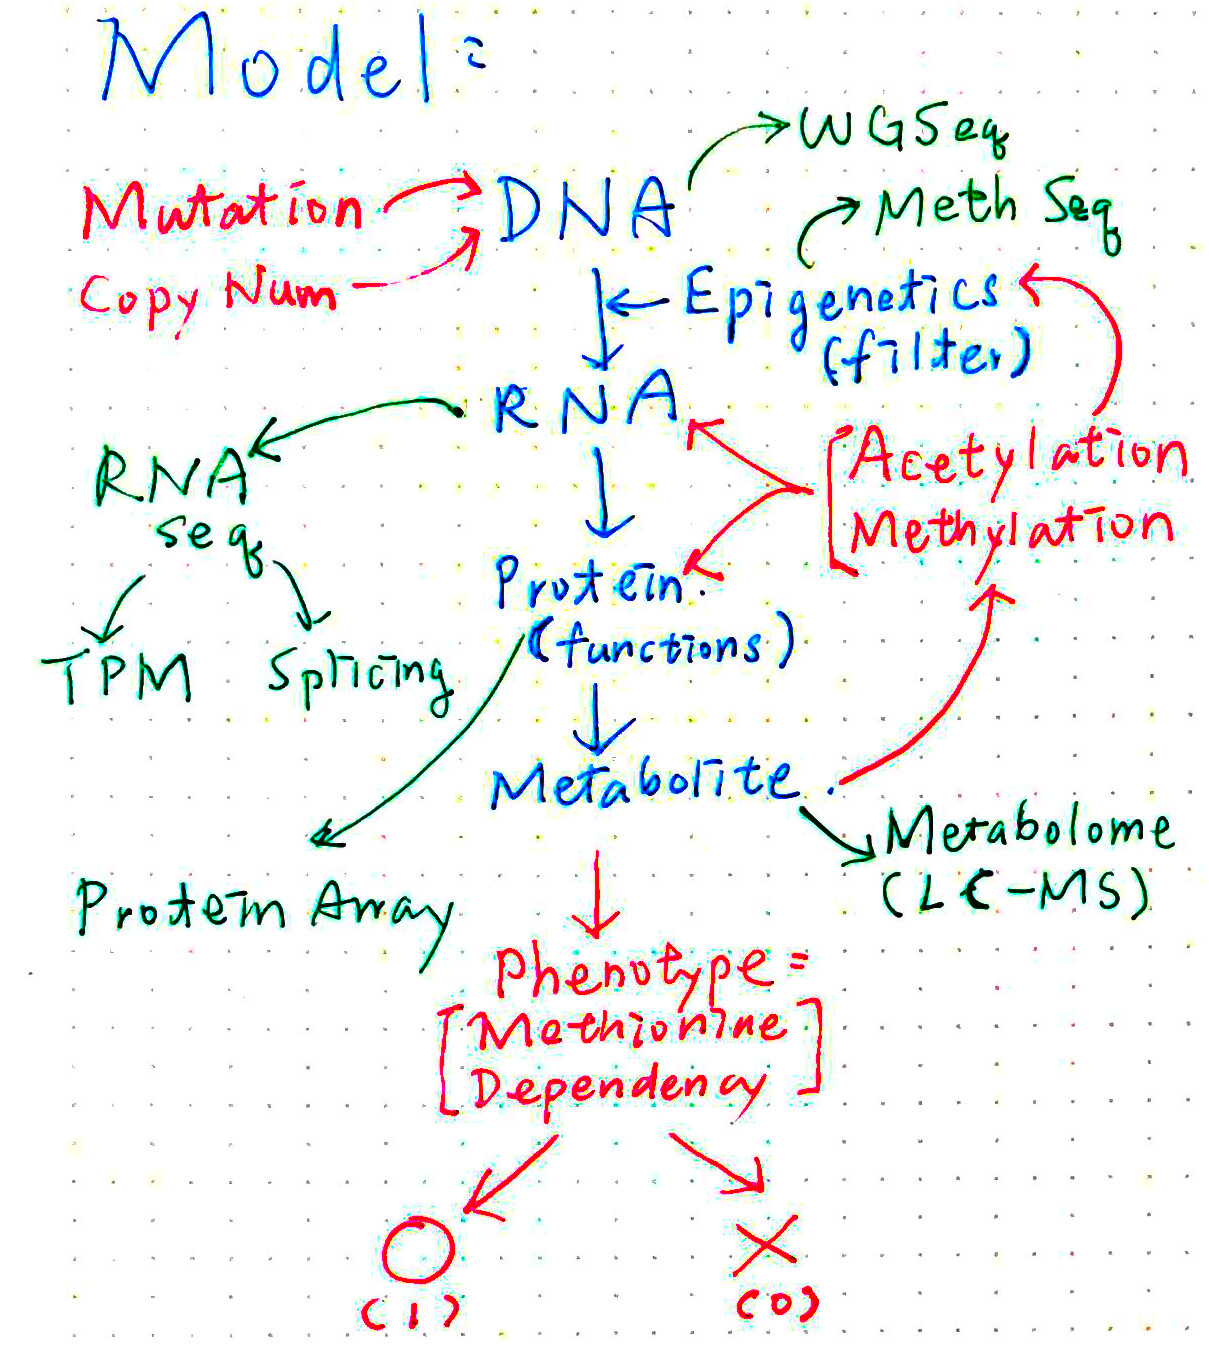 Model:
WGSeq
Mutation
DNA
Meth Seq
Copy Num
Epigenetics
(filter)
RNA
RNA
seq
[Acetylation
Methylation
Protein.
(functions)
TPM
Splicing
Metabolite.
Metabolome
(LC-MS)
Protein Array
Phenotype=
[Methionine
Dependency]
(1)
(0)